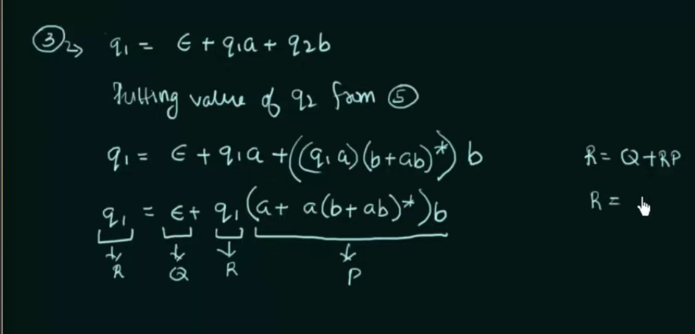 ③ ⇒ q1 = ϵ + q1a + q2b
Putting value of q2 from ⑤
q1 = ϵ + q1a + ((q1a)(b+ab)*) b
R = Q + RP
q1 = ϵ + q1 (a + a(b+ab)*)b
R =
R Q R P